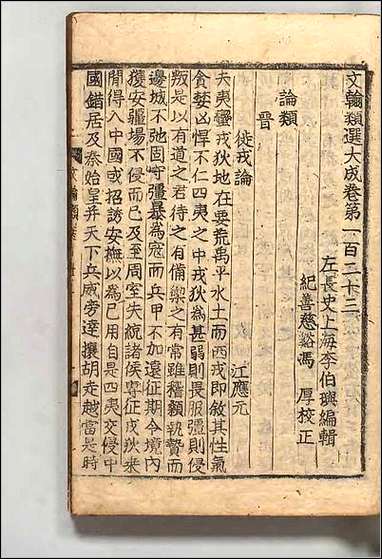 文翰類選大成卷第一百二十三
左長史上海李伯璵編輯
紀善慈谿馮　厚校正
論類
晉
徙戎論　江應元
夫夷蠻戎狄地在要荒禹平水土而西戎即敘其性氣
貪婪凶悍不仁四夷之中戎狄為甚弱則畏服彊則侵
叛是以有道之君待之有備禦之有常雖稽顙執贄而
邊城不弛固守彊暴為寇而兵甲不加遠征期令境內
獲安疆場不侵而已及至周室失統諸侯專征戎狄乘
間得入中國或招誘安撫以為己用自是四夷交侵中
國錯居及秦始皇并天下兵威旁達攘胡走越當是時
文翰類